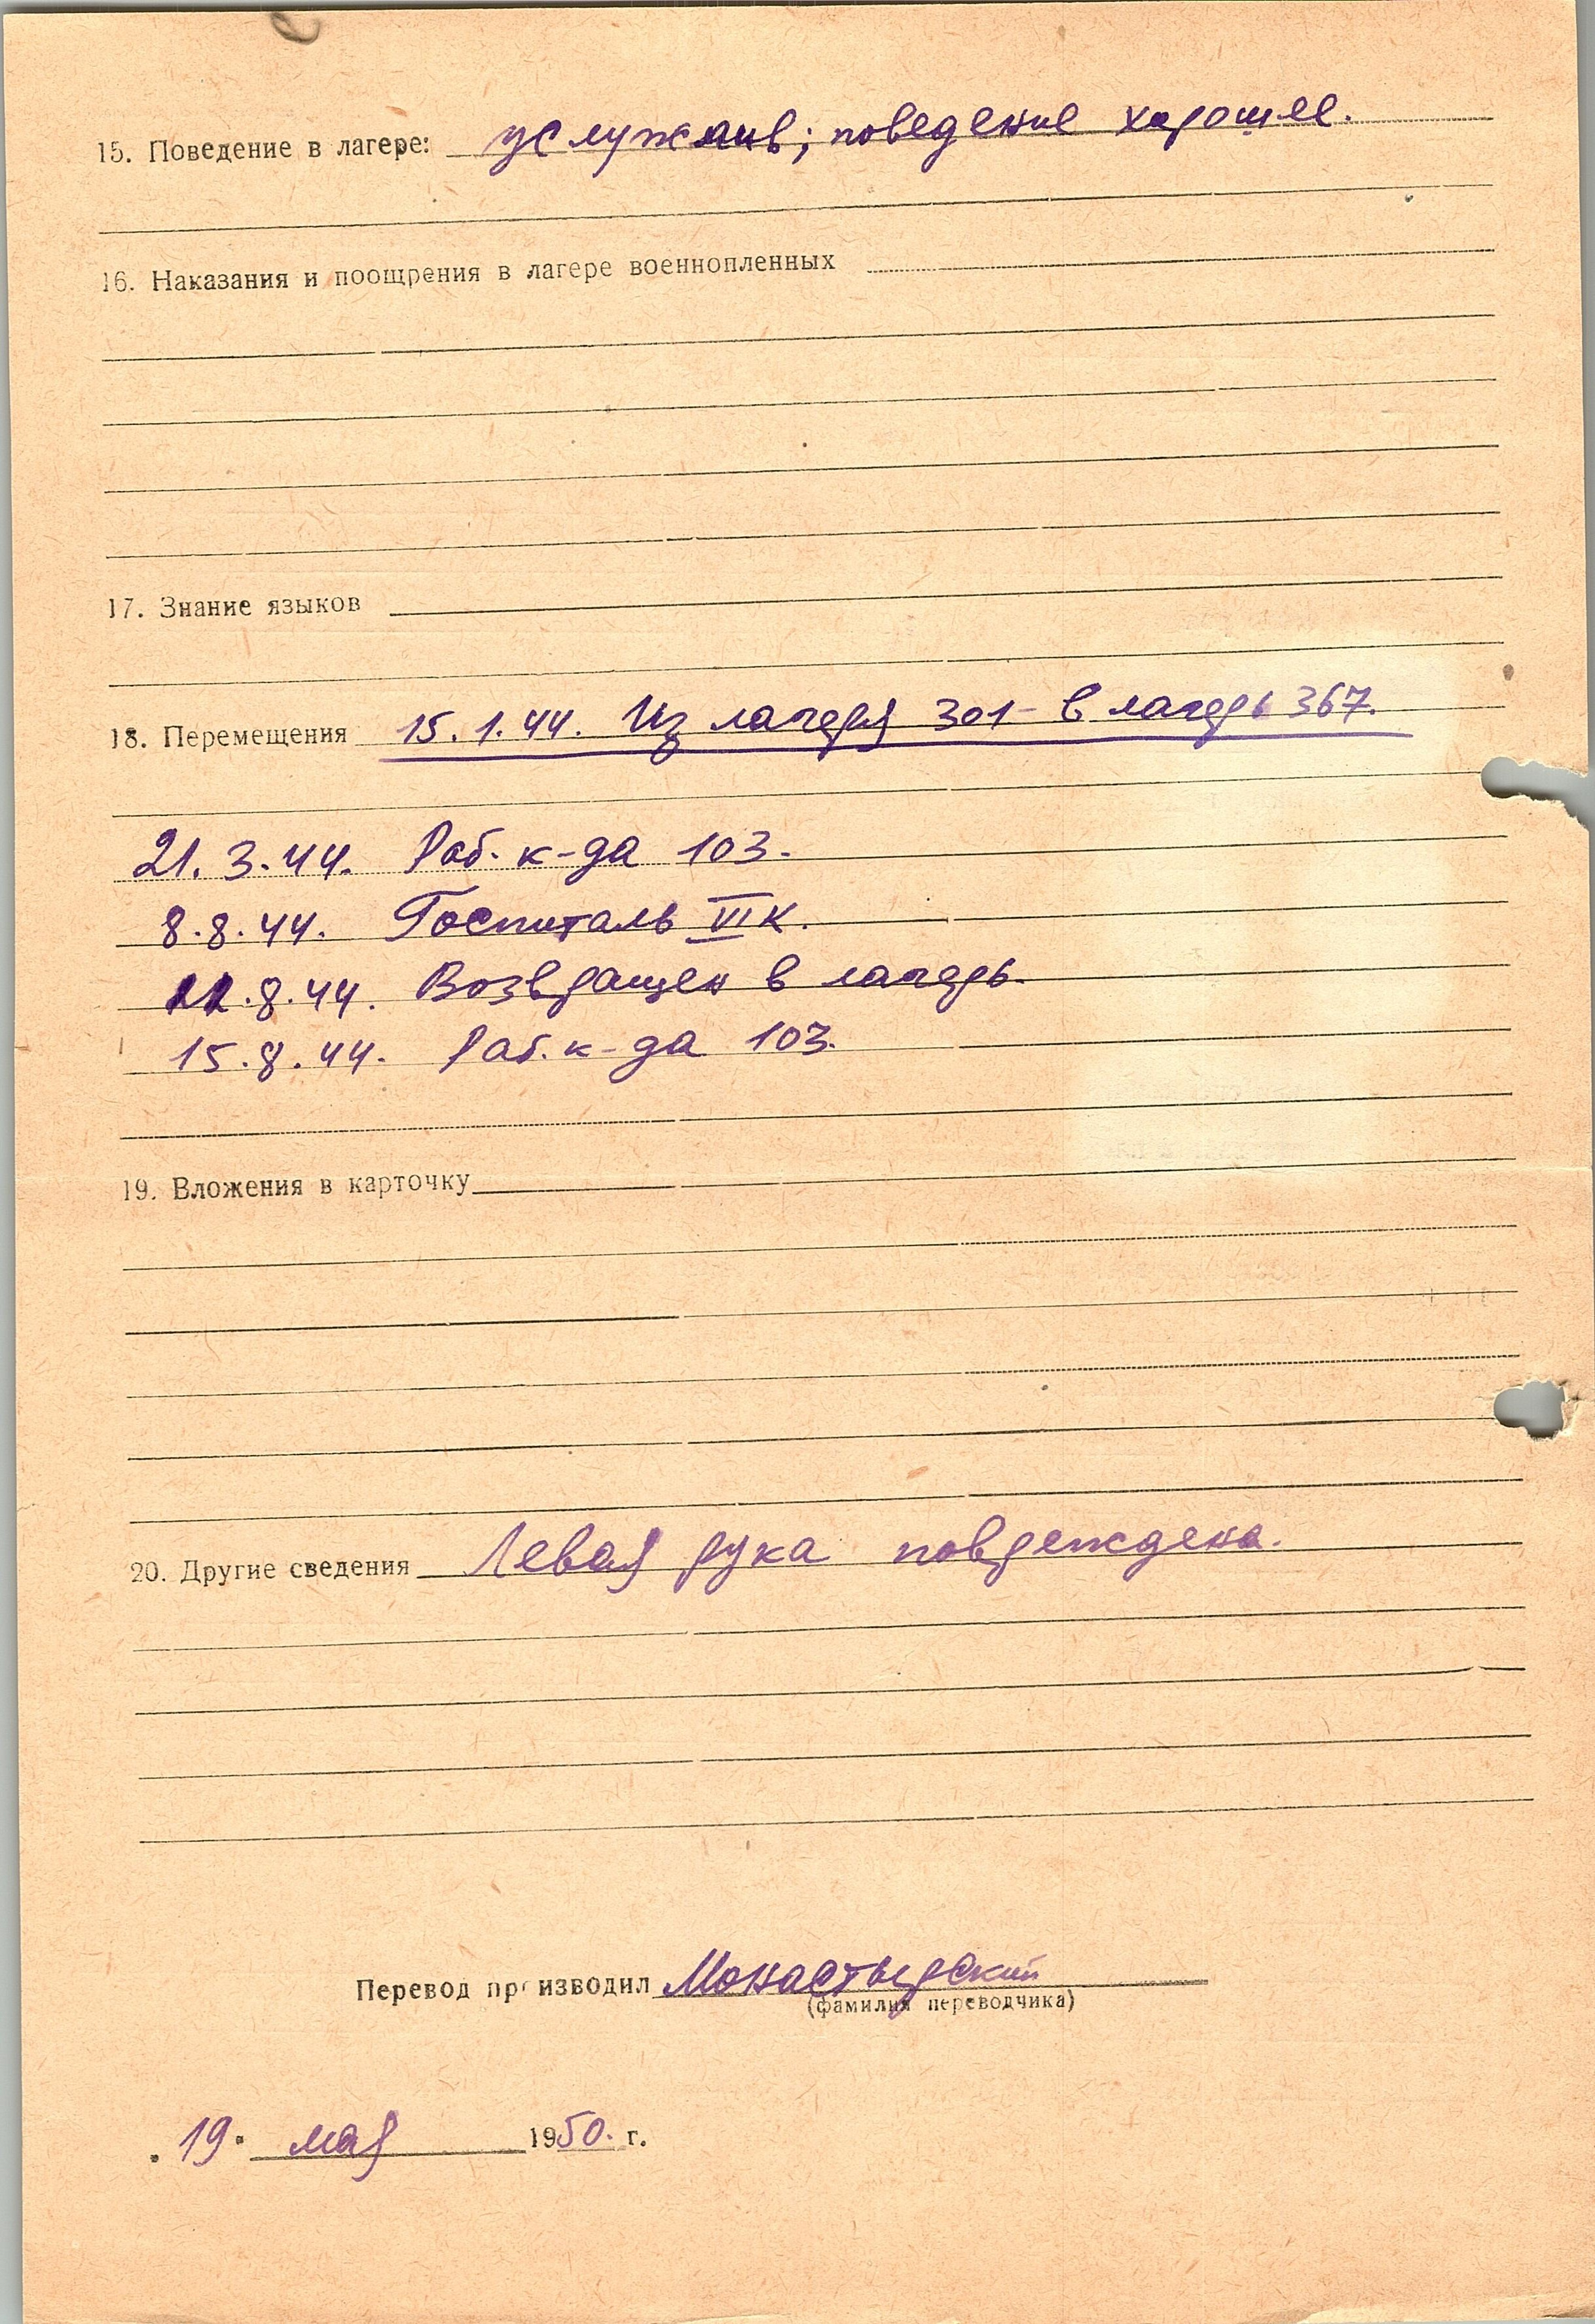 15. Поведение в лагере: услужлив; поведение хорошее.
16. Наказания и поощрения в лагере военнопленных
17. Знание языков
18. Перемещения 15.1.44. Из лагеря 301 – в лагерь 367.
21.3.44. Раб. к-да 103.
8.8.44. Госпиталь VI К.
.8.44. Возвращен в лагерь.
15.8.44. Раб. к-да 103.
19. Вложения в карточку
20. Другие сведения Левая рука повреждена.
Перевод производил Монастырский
(фамилия переводчика)
„19“ мая 1950. г.